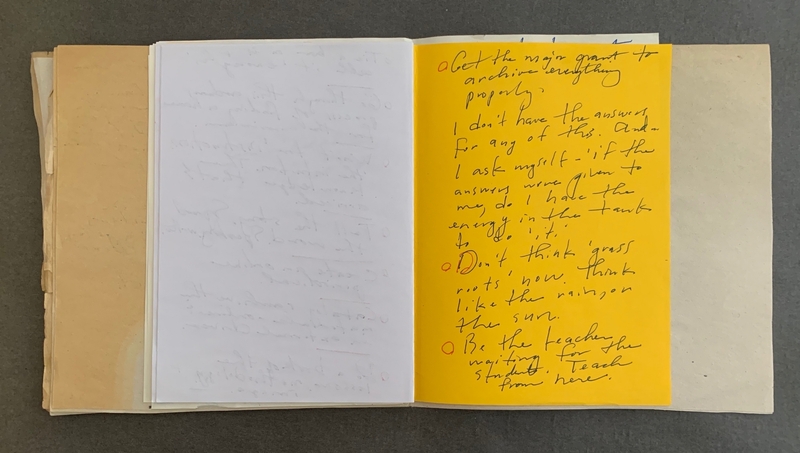 Get the major grant to
archive everything
properly.
I don't have the answers
for any of this. And -
I ask myself - 'if the
answers were given to
me, do I have the
energy in the tank
to do 'it.'
Don't think 'grass
roots' now. Think
like the rain, or
the sun.
Be the teacher
waiting for the
student. Teach
from here.